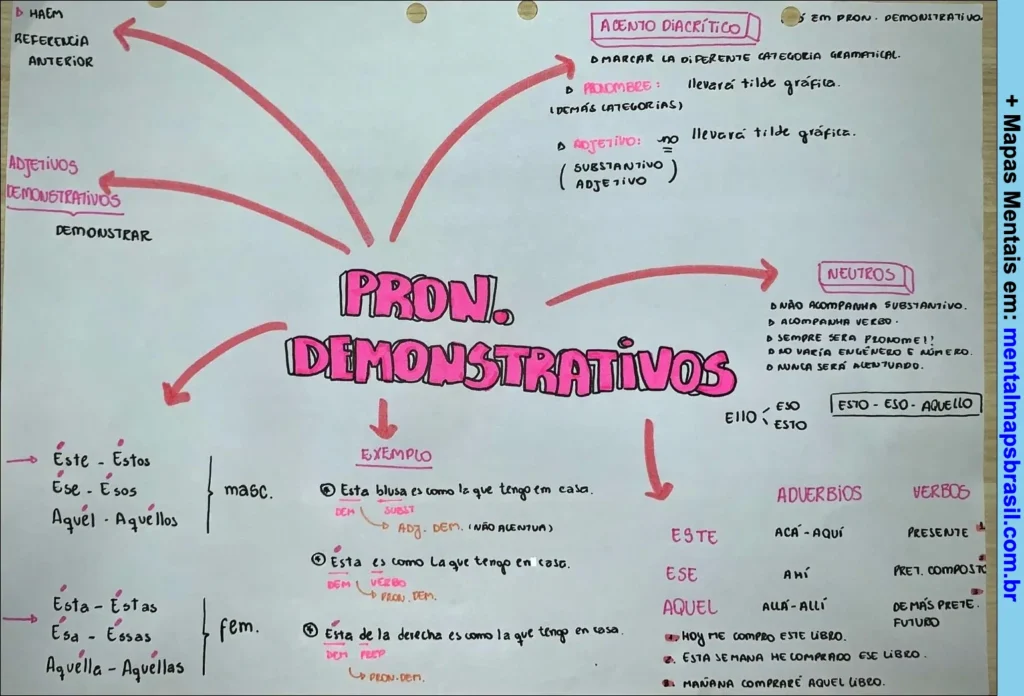 HAEM
REFERENCIA
ANTERIOR
ADJETIVOS
DEMONSTRATIVOS
DEMONSTRAR
ACENTO DIACRÍTICO
EM PRON. DEMONSTRATIVO
MARCAR LA DIFERENTE CATEGORIA GRAMATICAL.
PRONOMBRE: llevará tilde gráfica.
(DEMÁS CATEGORIAS)
ADJETIVO: no llevará tilde gráfica.
(SUBSTANTIVO
ADJETIVO)
PRON.
DEMONSTRATIVOS
NEUTROS
NÃO ACOMPANHA SUBSTANTIVO.
ACOMPANHA VERBO.
SEMPRE SERA PRONOME!!
NO VARÍA EN GÉNERO E NÚMERO.
NUNCA SERÁ ACENTUADO.
EllO
ESO
ESTO
ESTO - ESO - AQUELLO
Éste - Éstos
Ése - Ésos
Aquél - Aquéllos
masc.
Ésta - Éstas
Ésa - Éssas
Aquélla - Aquéllas
fem.
EXEMPLO
Esta blusa es como la que tengo em casa.
DEM SUBST
ADJ. DEM. (NÃO ACENTUA)
Ésta es como la que tengo en casa.
DEM VERBO
PRON. DEM.
Ésta de la derecha es como la que tengo en casa.
DEM PREP
PRON. DEM.
ADVERBIOS VERBOS
ESTE ACÁ - AQUÍ PRESENTE 1
ESE AHÍ PRET. COMPOSTO 2
AQUEL ALLÁ - ALLÍ DEMÁS PRETE. 3
FUTURO
1. HOY ME COMPRO ESTE LIBRO.
2. ESTA SEMANA HE COMPRADO ESE LIBRO.
3. MAÑANA COMPRARÉ AQUEL LIBRO.
+ Mapas Mentais em: mentalmapsbrasil.com.br